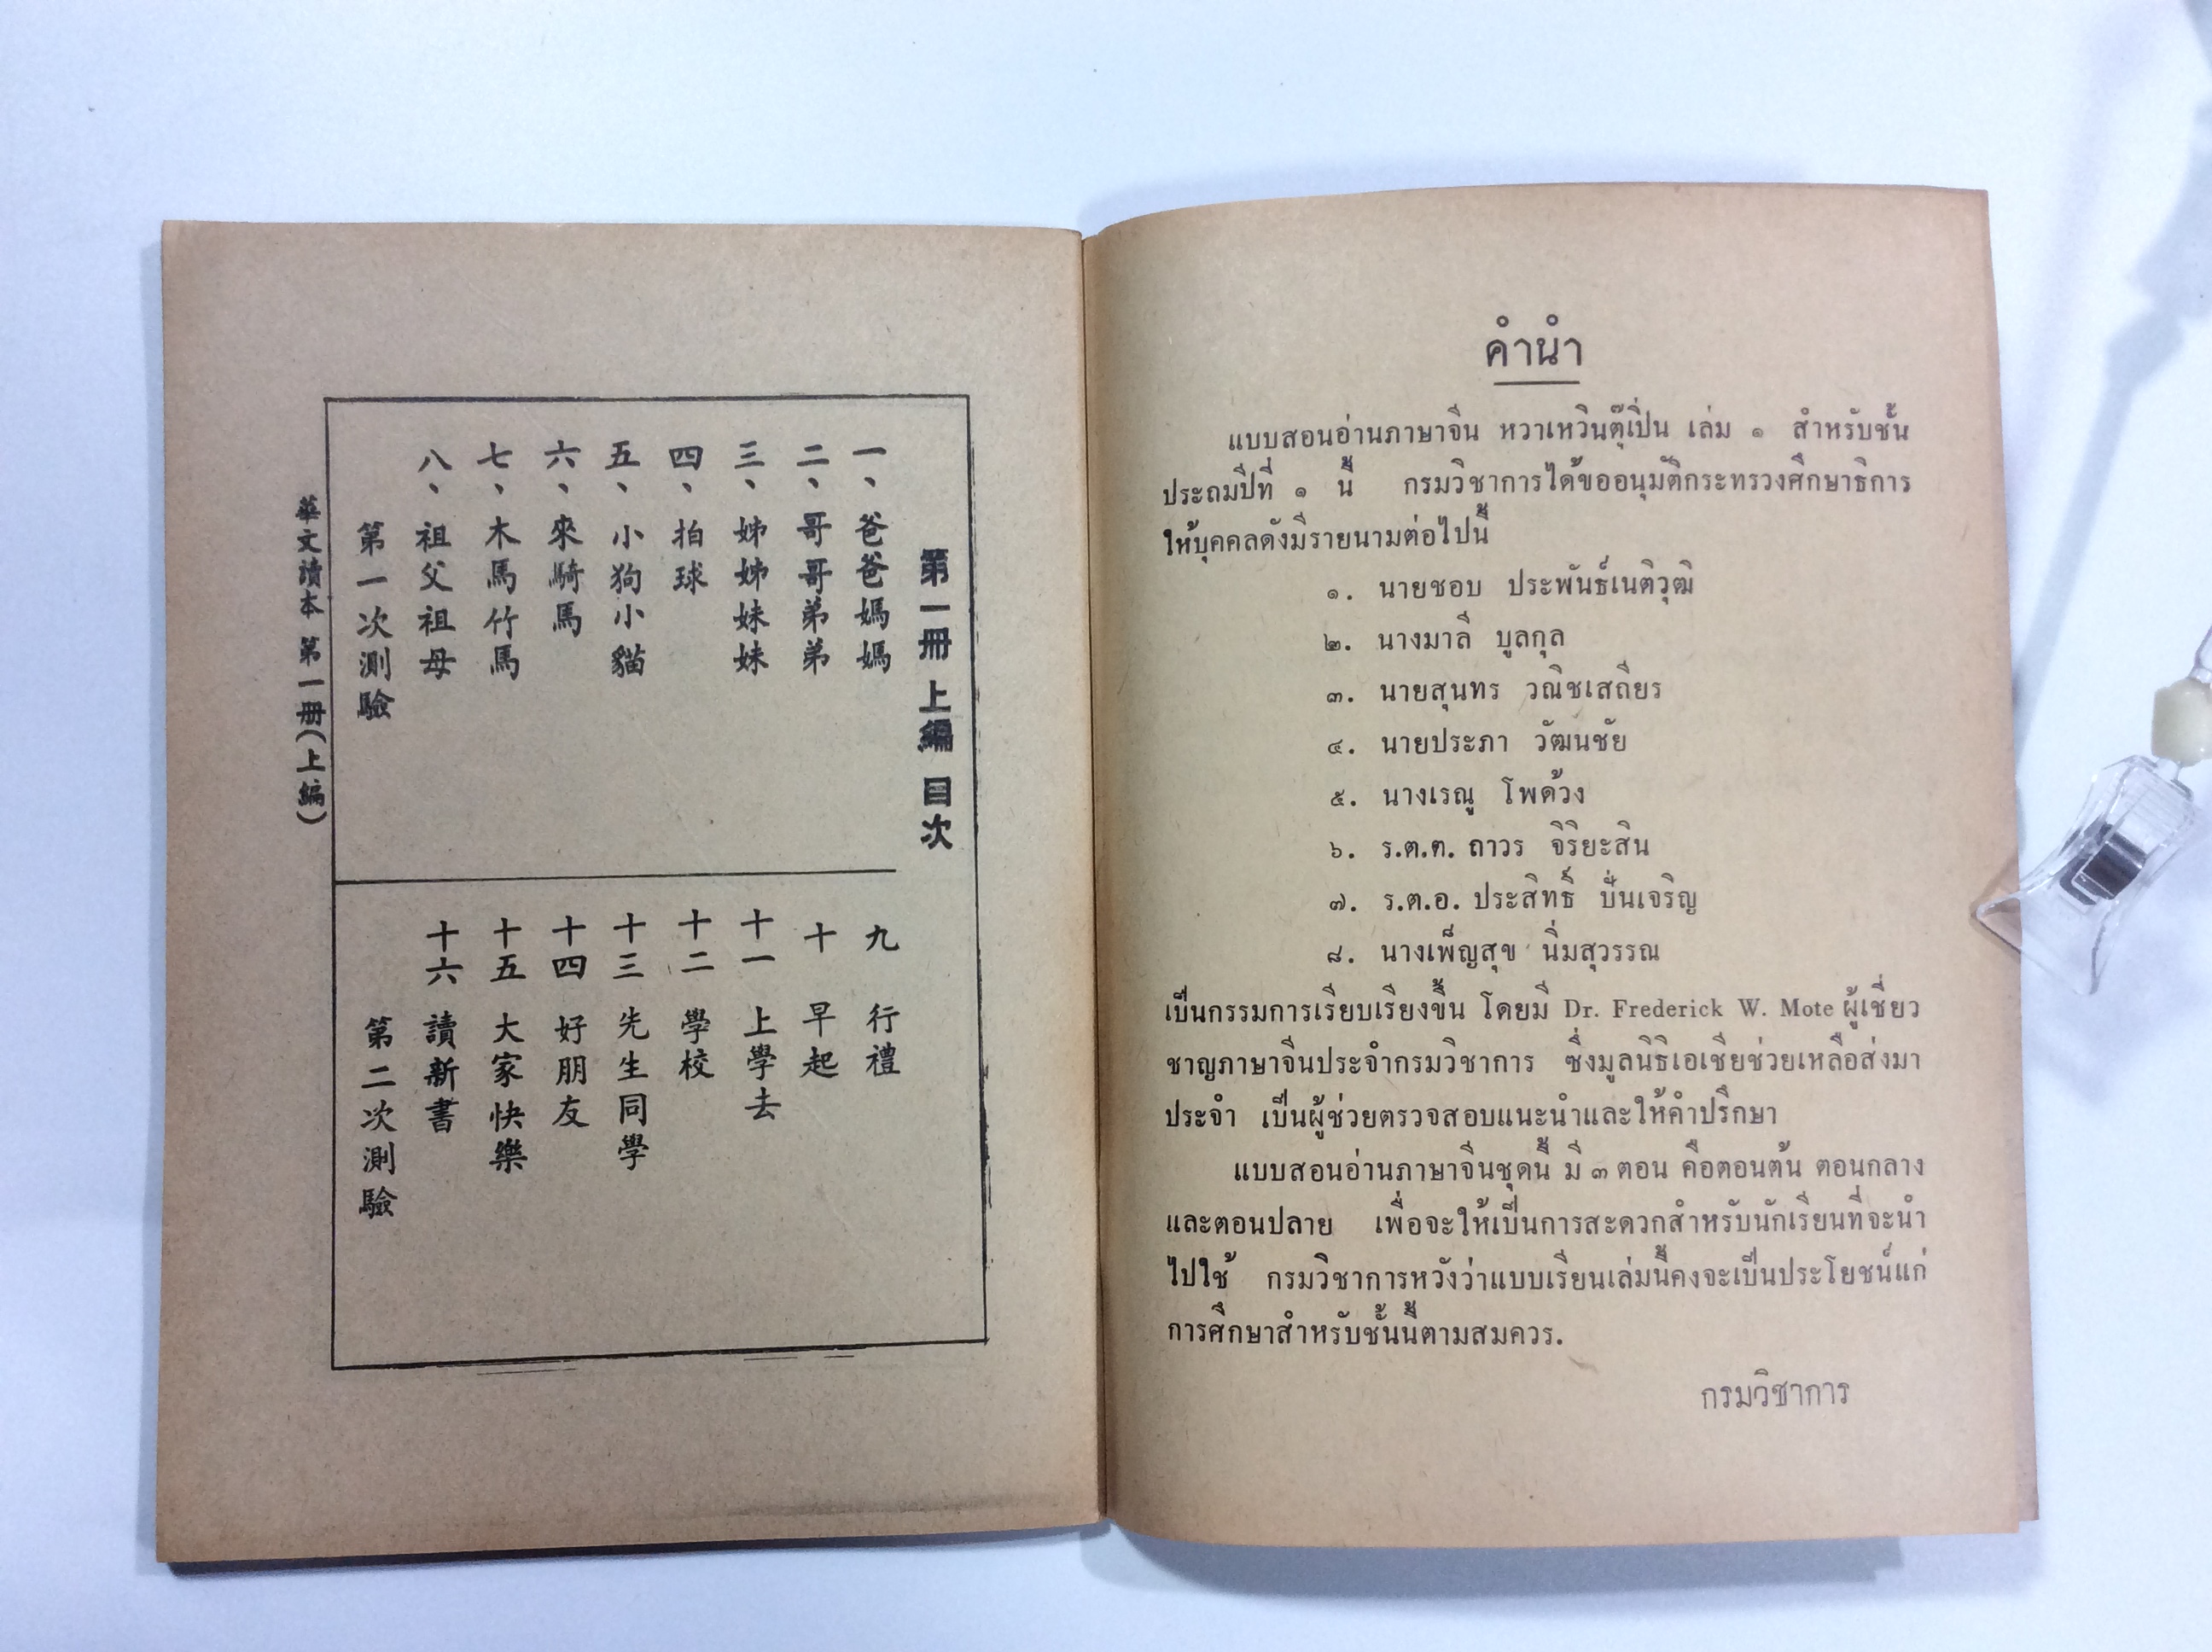 第一冊 上編 目次
一、爸爸媽媽
二、哥哥弟弟
三、姊姊妹妹
四、拍球
五、小狗小貓
六、來騎馬
七、木馬竹馬
八、祖父祖母
第一次測驗
九 行禮
十 早起
十一 上學去
十二 學校
十三 先生同學
十四 好朋友
十五 大家快樂
十六 讀新書
第二次測驗
華文讀本 第一册(上編)
คำนำ
แบบสอนอ่านภาษาจีน หวาเหวินตุ๊เปิ่น เล่ม ๑ สำหรับชั้น
ประถมปีที่ ๑ นี้ กรมวิชาการได้ขออนุมัติกระทรวงศึกษาธิการ
ให้บุคคลดังมีรายนามต่อไปนี้
๑. นายชอบ ประพันธ์เนติวุฒิ
๒. นางมาลี บูลกุล
๓. นายสุนทร วณิชเสถียร
๔. นายประภา วัฒนชัย
๕. นางเรณู โพด้วง
๖. ร.ต.ต. ถาวร จิริยะสิน
๗. ร.ต.อ. ประสิทธิ์ ปั่นเจริญ
๘. นางเพ็ญสุข นิ่มสุวรรณ
เป็นกรรมการเรียบเรียงขึ้น โดยมี Dr. Frederick W. Mote ผู้เชี่ยว
ชาญภาษาจีนประจำกรมวิชาการ ซึ่งมูลนิธิเอเชียช่วยเหลือส่งมา
ประจำ เป็นผู้ช่วยตรวจสอบแนะนำและให้คำปรึกษา
แบบสอนอ่านภาษาจีนชุดนี้ มี ๓ ตอน คือตอนต้น ตอนกลาง
และตอนปลาย เพื่อจะให้เป็นการสะดวกสำหรับนักเรียนที่จะนำ
ไปใช้ กรมวิชาการหวังว่าแบบเรียนเล่มนี้คงจะเป็นประโยชน์แก่
การศึกษาสำหรับชั้นนี้ตามสมควร.
กรมวิชาการ